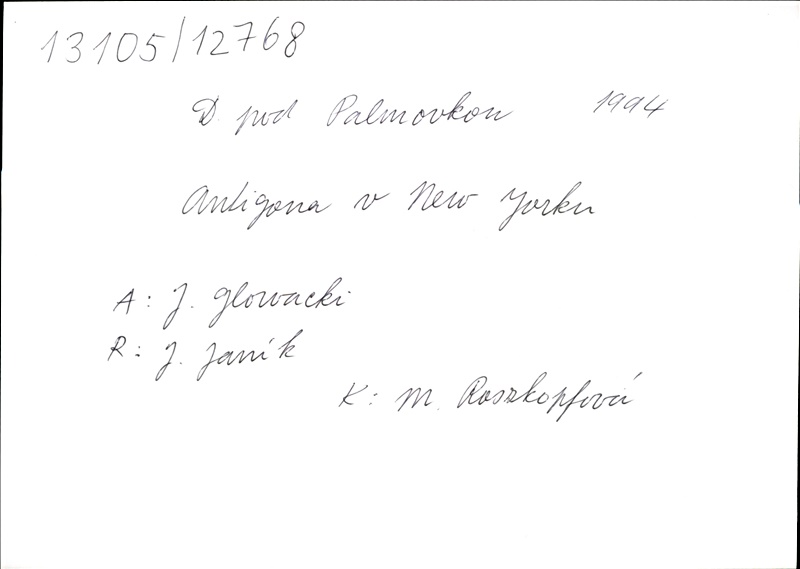 13105/12768
D. pod Palmovkou 1994
Antigona v New Yorku
A: J. Glowacki
R: J. Janík
K: M. Roszkopfová